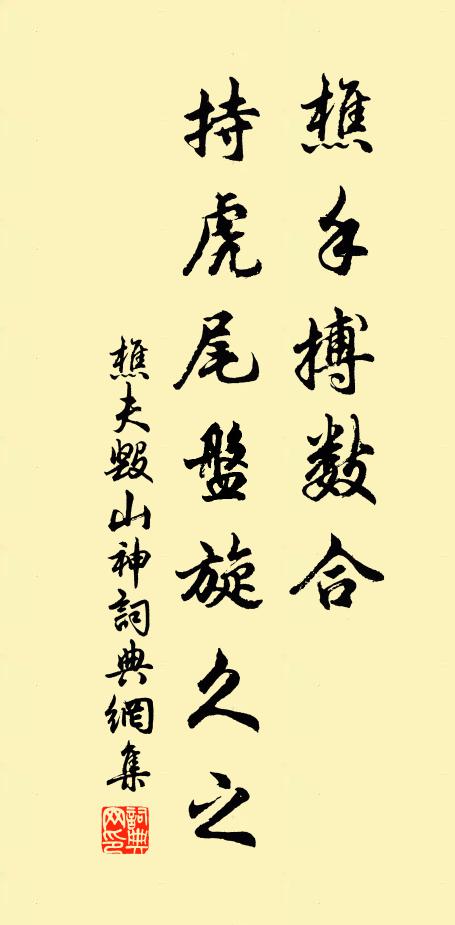 樵手搏数合
持虎尾盤旋久之
樵夫毀山神詞典網集
詞典網印